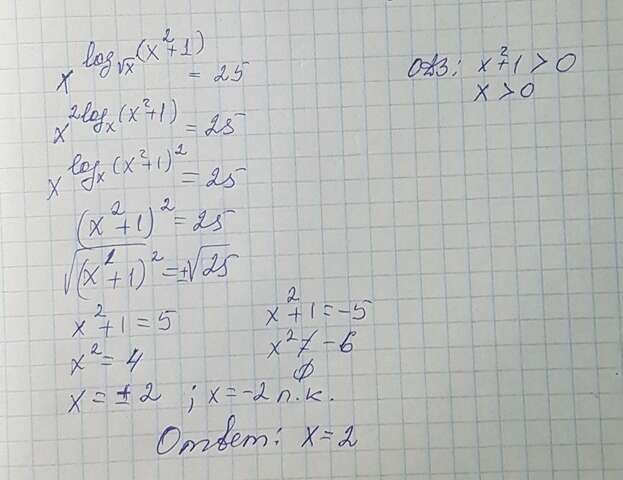 x^(log_√x (x²+1)) = 25
ОДЗ: x²+1 > 0
x > 0
x^(2log_x (x²+1)) = 25
x^(log_x (x²+1)²) = 25
(x²+1)² = 25
√(x²+1)² = ±√25
x²+1 = 5
x²+1 = -5
x² = 4
x² ≠ -6
∅
x = ±2 ; x = -2 п.к.
Ответ: x = 2